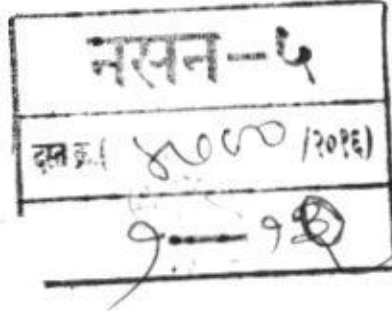 नसन-५
दस्त क्र.( ४७८० /२०१६)
१ — १